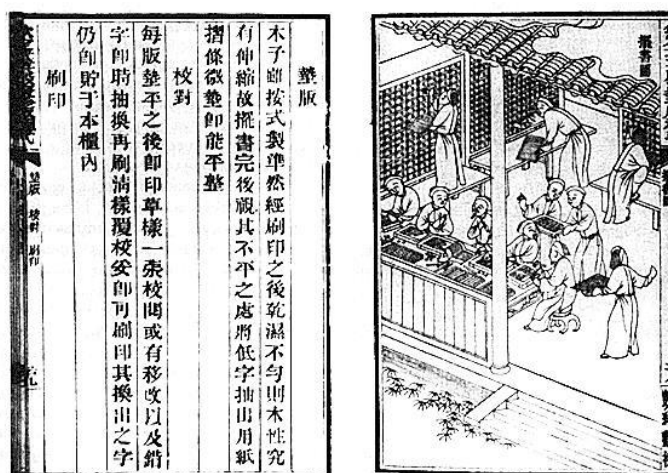 擺書圖
墊版
木子雖按式製準然經刷印之後乾濕不勻則木性究
有伸縮故擺書完後觀其不平之處將低字抽出用紙
摺條微墊卽能平整
校對
每版墊平之後卽印草樣一張校閱或有移改以及錯
字卽時抽換再刷淸樣覆校妥卽可刷印其換出之字
仍卽貯于本櫃內
刷印
墊版 校對 刷印